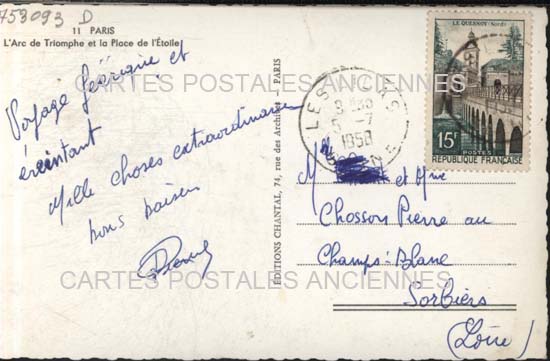 753093 D
11 PARIS
L'Arc de Triomphe et la Place de l'Étoile
Voyage féérique et
éreintant
Mille choses extraordinaires
bons baisers
ÉDITIONS CHANTAL, 74, rue des Archives - PARIS
LE QUESNOY (Nord)
15F
POSTES
REPUBLIQUE FRANÇAISE
M et Mme
Chosson Pierre au
Champs-Blanc
Sorbiers
(Loire)
CARTES POSTALES ANCIENNES
CARTES POSTALES ANCIENNES